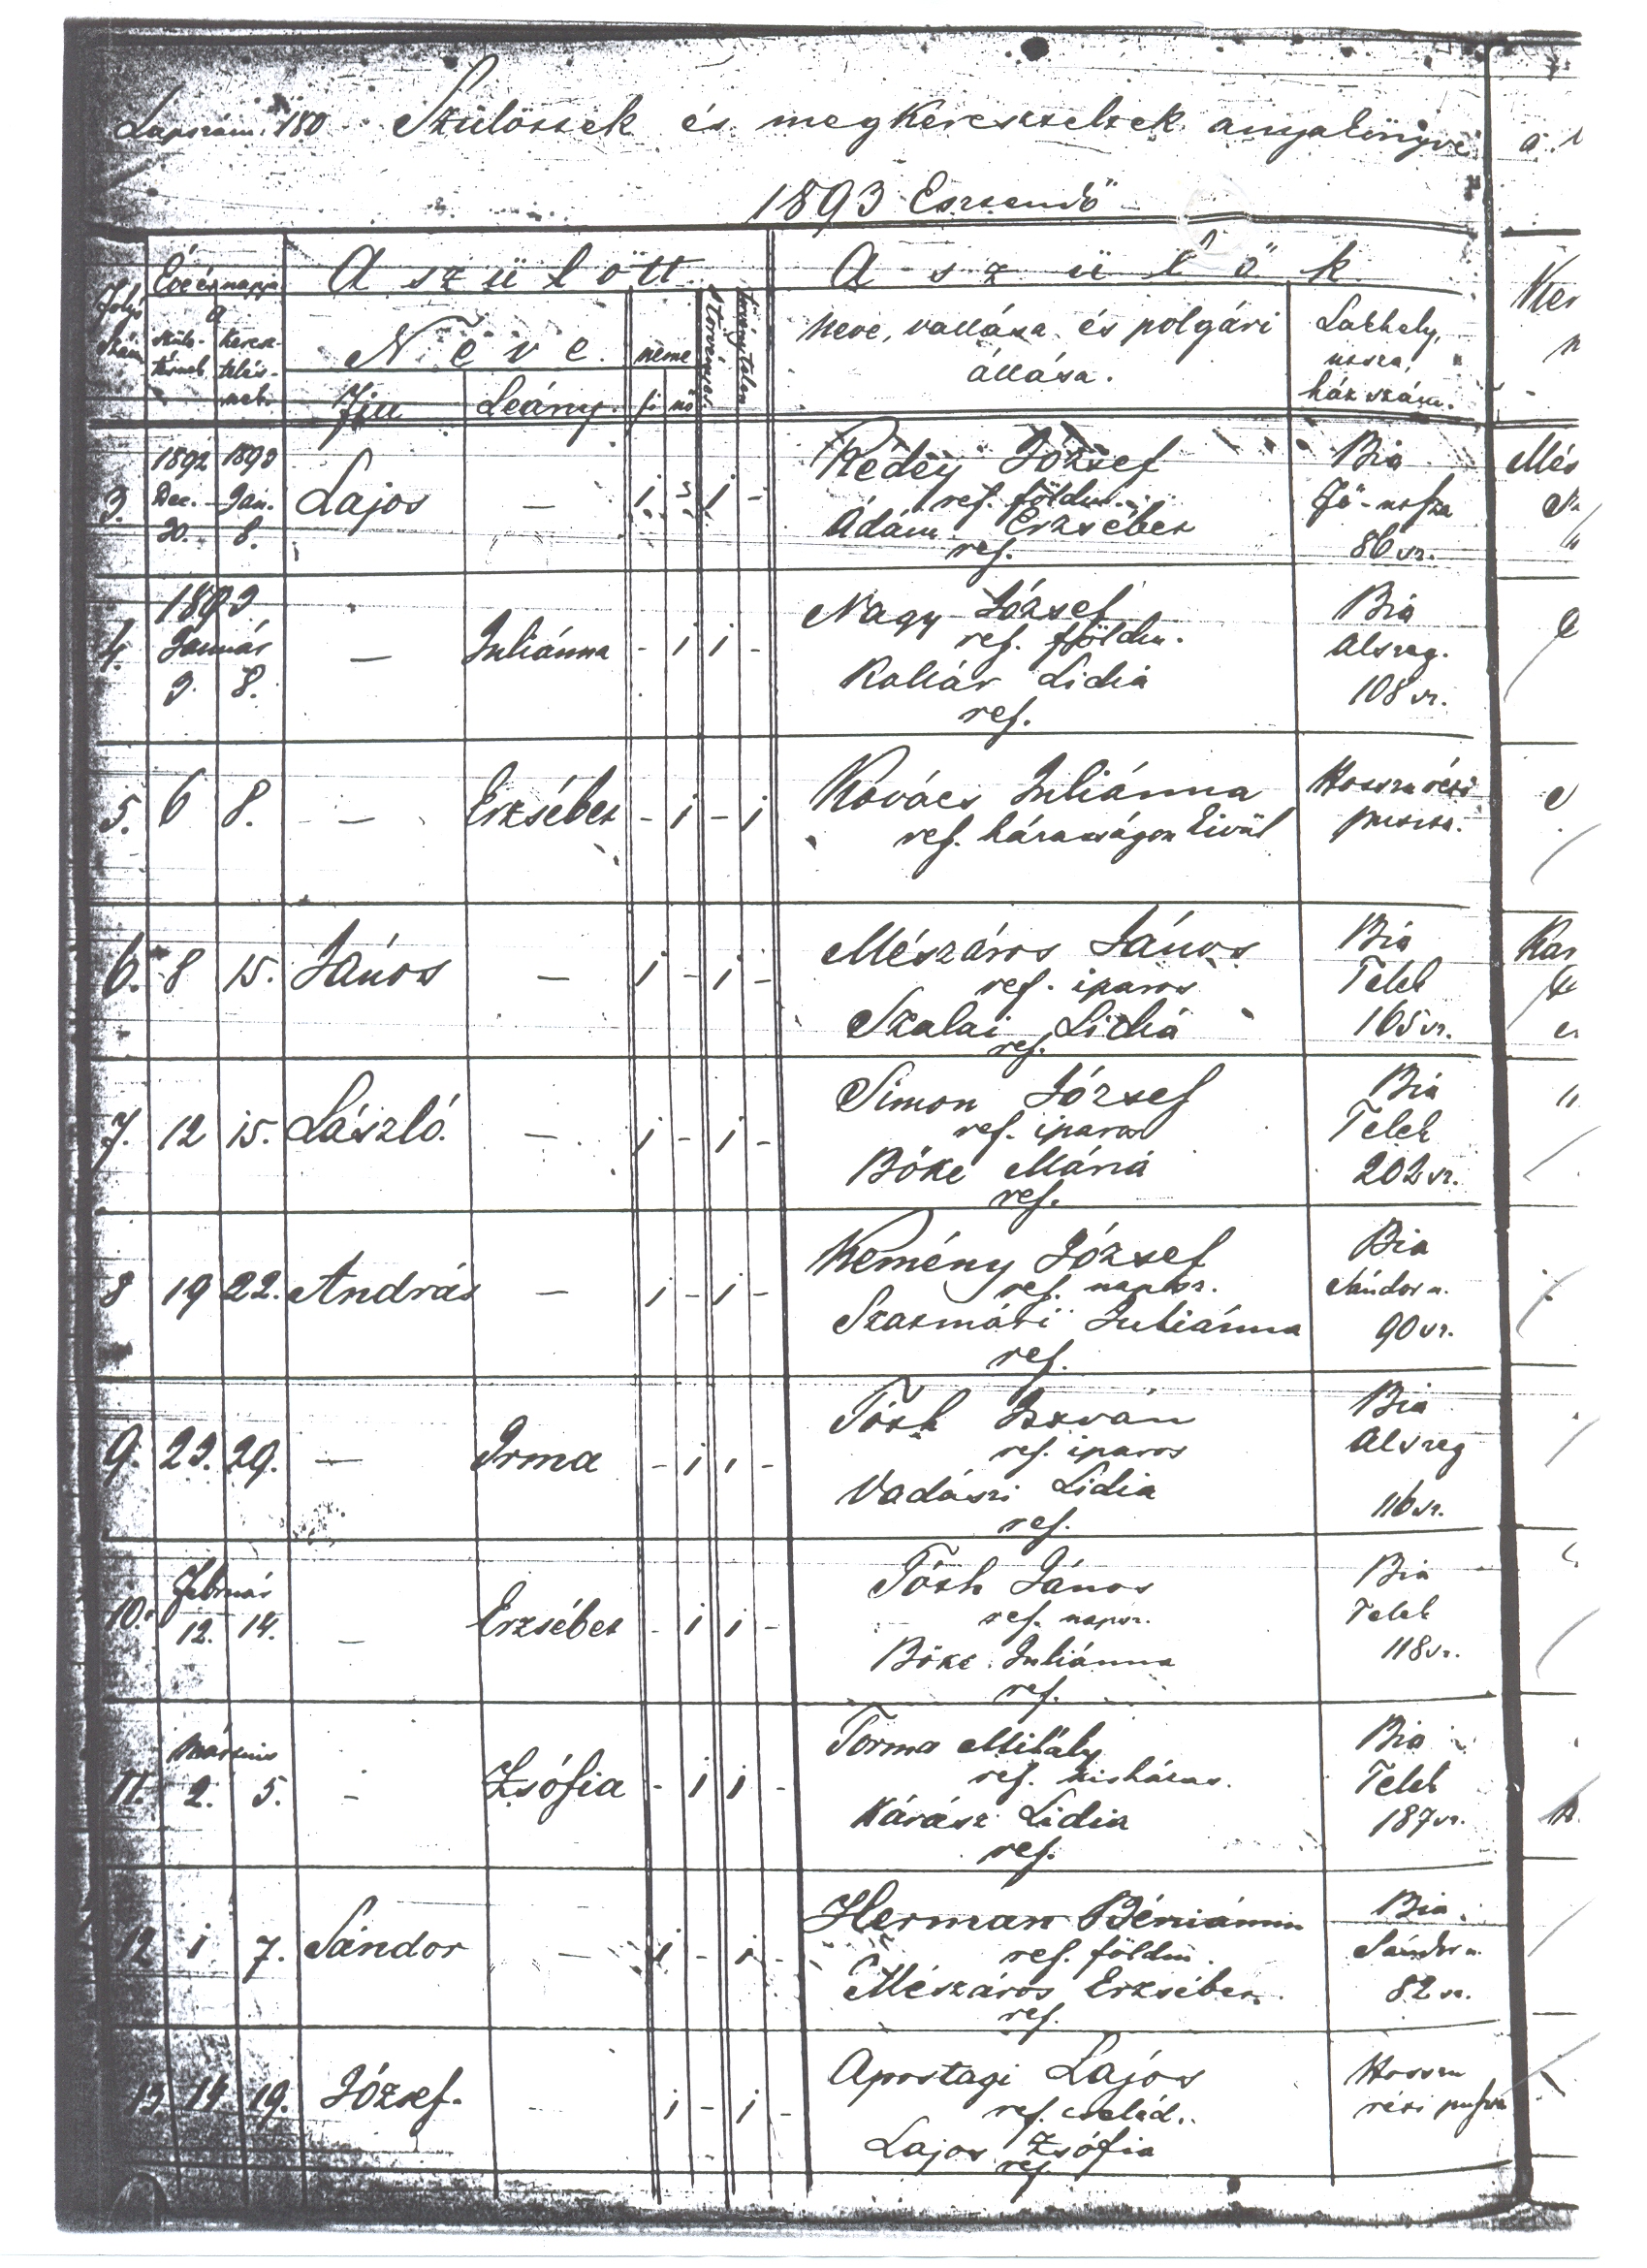 Lapszám: 180 Szülöttek és megkereszteltek anyakönyve
1893 Esztendő
Folyó szám
Év és napja a
születésnek
keresztelésnek
A született
Neve.
Fiu
Leány.
neme
fi
nő
törvényes.
törvénytelen
A szülők
neve, vallása és polgári
állása.
Lakhely,
utcza,
ház szám.
3.
1892 Dec. 30.
1893 Jan. 8.
Lajos
—
1 - 1 -
Rédey József
ref. földm.
Ádám Erzsébet
ref.
Bia
Fő-utsza
86 sz.
4.
1893
Január
3. 8.
—
Juliánna
- 1 1 -
Nagy József
ref. földm.
Kollár Lidia
ref.
Bia
Alszeg.
108 sz.
5. 6 8.
—
Erzsébet
- 1 - 1
Kovács Juliánna
ref. házasságon kivül
Hosszuréti
puszta.
6. 8 15. János
—
1 - 1 -
Mészáros János
ref. iparos
Szalai Lidia
ref.
Bia
Telek
165 sz.
7. 12 15. László.
—
1 - 1 -
Simon József
ref. iparos
Böke Mária
ref.
Bia
Telek
202 sz.
8 19 22. András
—
1 - 1 -
Kemény József
ref. napsz.
Szatmári Juliánna
ref.
Bia
Sándor u.
90 sz.
9. 23. 29.
—
Irma
- 1 1 -
Tóth István
ref. iparos
Vadászi Lidia
ref.
Bia
Alszeg
116 sz.
10.
Február
12. 14.
—
Erzsébet
- 1 1 -
Tóth János
ref. napsz.
Böke Juliánna
ref.
Bia
Telek
118 sz.
11.
Márczius
2. 5.
—
Zsófia
- 1 1 -
Torma Mihály
ref. kisházas.
Kárász Lidia
ref.
Bia
Telek
187 sz.
12 1 7. Sándor
—
1 - 1 -
Herman Béniámin
ref. földm.
Mészáros Erzsébet.
ref.
Bia
Sándor u.
82 sz.
13. 14 19. József.
-
1 - 1 -
Apostagi Lajos
ref. cseléd.
Lajos Zsófia
ref.
Hosszu
réti puszta